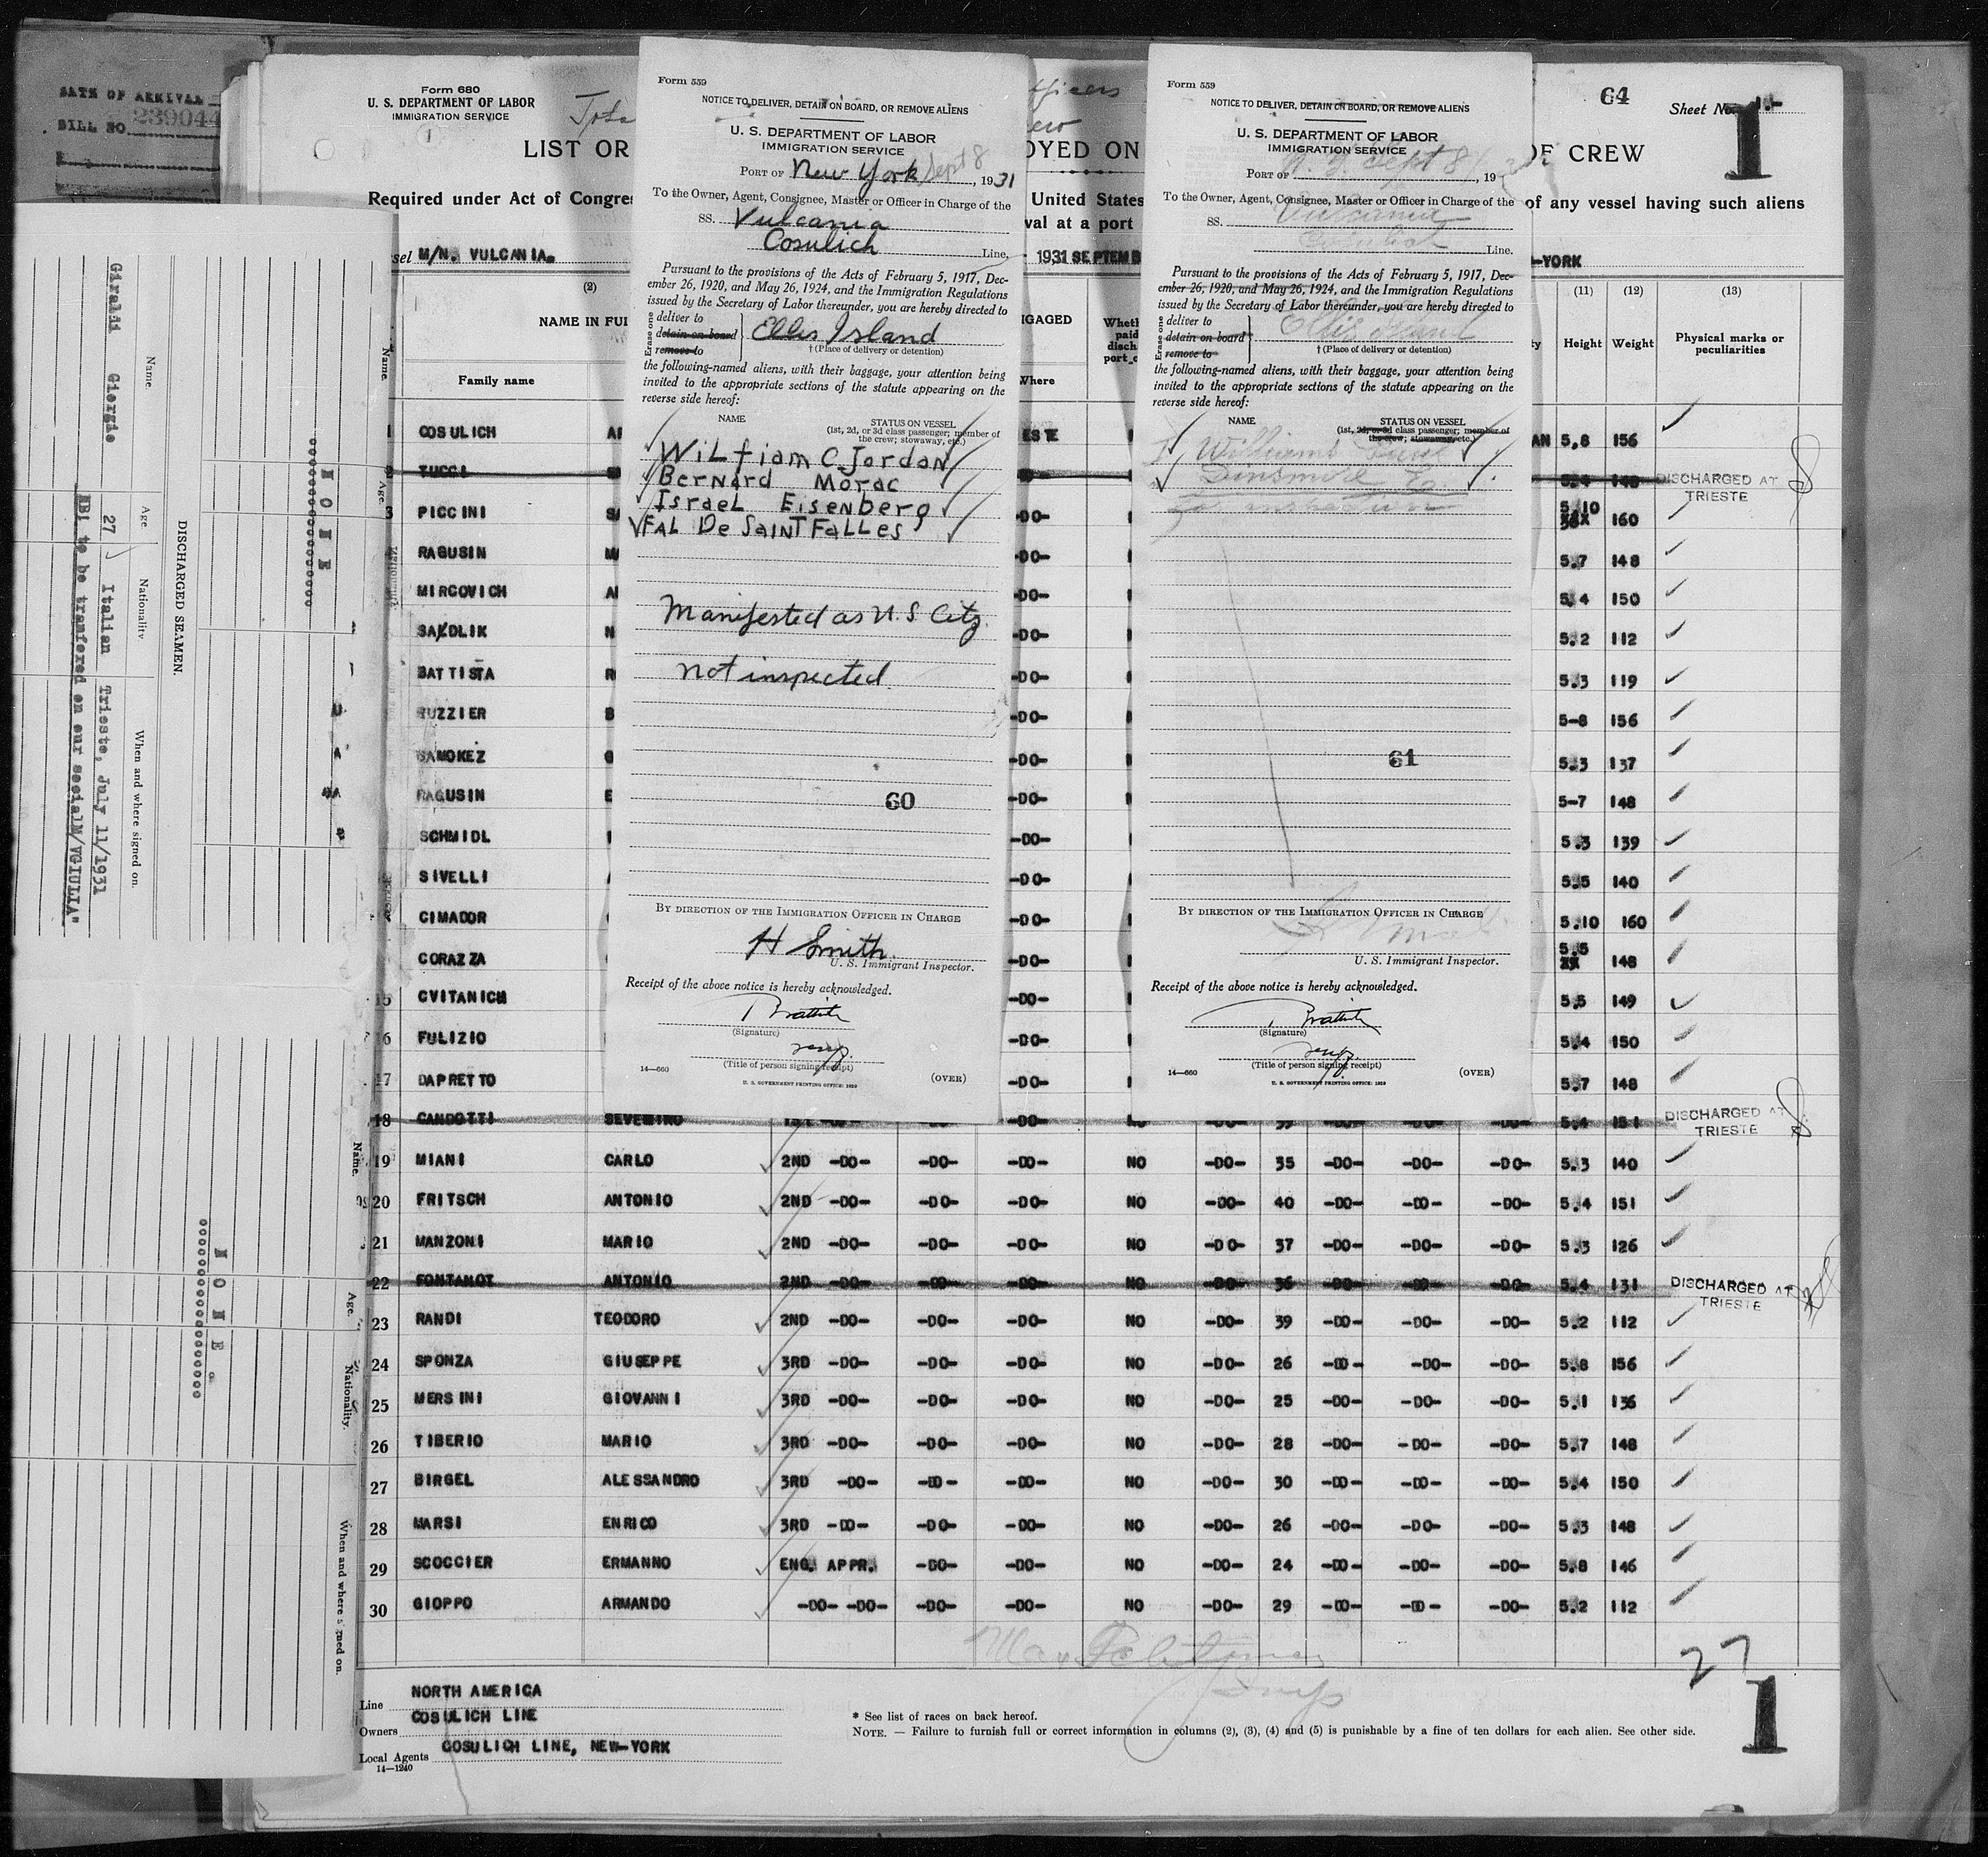 DATE OF ARRIVAL
BILL NO. 239044
Name.
Age.
Nationality
When and where signed on.
Giraldi Giorgio
27
Italian
Trieste, July 11/1931
DISCHARGED SEAMEN.
NONE
Name.
Age.
NONE.
Name.
Age.
Nationality.
When and where
Form 680
U. S. DEPARTMENT OF LABOR
IMMIGRATION SERVICE
LIST OR
OYED ON
OF CREW
64
Sheet No. 1
Required under Act of Congre
United States
of any vessel having such aliens
val at a port
M/N. VULCANIA.
1931 SEPTEMB
-YORK
(2)
(11) (12) (13)
NAME IN FUL
GAGED
Height Weight Physical marks or
peculiarities
Family name
Where
Form 559
NOTICE TO DELIVER, DETAIN ON BOARD, OR REMOVE ALIENS
U. S. DEPARTMENT OF LABOR
IMMIGRATION SERVICE
PORT OF New York Sept 8, 1931
To the Owner, Agent, Consignee, Master or Officer in Charge of the
SS. Vulcania
Cosulich Line,
Pursuant to the provisions of the Acts of February 5, 1917, Dec-
ember 26, 1920, and May 26, 1924, and the Immigration Regulations
issued by the Secretary of Labor thereunder, you are hereby directed to
Erase one
deliver to
detain on board
remove to
Ellis Island
† (Place of delivery or detention)
the following-named aliens, with their baggage, your attention being
invited to the appropriate sections of the statute appearing on the
reverse side hereof:
NAME STATUS ON VESSEL
(1st, 2d, or 3d class passenger; member of
the crew; stowaway, etc.)
William C Jordan
Bernard Morac
Israel Eisenberg
FAL De SaiNT Falles
Manifested as U.S Citz.
not inspected.
60
BY DIRECTION OF THE IMMIGRATION OFFICER IN CHARGE
H Smith
U. S. Immigrant Inspector.
Receipt of the above notice is hereby acknowledged.
(Signature)
(Title of person signing receipt)
14—660
U. S. GOVERNMENT PRINTING OFFICE: 1929
(OVER)
Form 559
NOTICE TO DELIVER, DETAIN ON BOARD, OR REMOVE ALIENS
U. S. DEPARTMENT OF LABOR
IMMIGRATION SERVICE
PORT OF N. Y. Sept 8, 19
To the Owner, Agent, Consignee, Master or Officer in Charge of the
SS. Vulcania
Cosulich Line.
Pursuant to the provisions of the Acts of February 5, 1917, Dec-
ember 26, 1920, and May 26, 1924, and the Immigration Regulations
issued by the Secretary of Labor thereunder, you are hereby directed to
Erase one
deliver to
detain on board
remove to
Ellis Island
† (Place of delivery or detention)
the following-named aliens, with their baggage, your attention being
invited to the appropriate sections of the statute appearing on the
reverse side hereof:
NAME STATUS ON VESSEL
(1st, 2d, or 3d class passenger; member of
the crew; stowaway, etc.)
Williams
Dinsmore E.
61
BY DIRECTION OF THE IMMIGRATION OFFICER IN CHARGE
U. S. Immigrant Inspector.
Receipt of the above notice is hereby acknowledged.
(Signature)
(Title of person signing receipt)
14—660
U. S. GOVERNMENT PRINTING OFFICE: 1929
(OVER)
1 COSULICH 5,8 156
TUCCI DISCHARGED AT
TRIESTE
3 PICCINI -DO- 5.10 160
RAGUSIN -DO- 5.7 148
MIRCOVICH -DO- 5.4 150
-DO- 5.2 112
BATTISTA -DO- 5.3 119
-DO- 5-8 156
SAMOKEZ -DO- 5.3 137
RAGUSIN -DO- 5-7 148
SCHMIDL -DO- 5.3 139
SIVELLI -DO- 5.5 140
CIMADOR -DO- 5.10 160
CORAZZA -DO- 5.5 148
15 CVITANICH -DO- 5.5 149
16 FULIZIO -DO- 5.4 150
17 DAPRETTO -DO- 5.7 148
18 CANDOTTI SEVERINO -DO- DISCHARGED AT
TRIESTE
19 MIANI CARLO 2ND -DO- -DO- -DO- NO -DO- 35 -DO- -DO- -DO- 5.3 140
20 FRITSCH ANTONIO 2ND -DO- -DO- -DO- NO -DO- 40 -DO- -DO- -DO- 5.4 151
21 MANZONI MARIO 2ND -DO- -DO- -DO- NO -DO- 37 -DO- -DO- -DO- 5.3 126
22 FONTANOT ANTONIO 2ND -DO- -DO- -DO- NO -DO- 36 -DO- -DO- -DO- 5.4 131 DISCHARGED AT
TRIESTE
23 RANDI TEODORO 2ND -DO- -DO- -DO- NO -DO- 39 -DO- -DO- -DO- 5.2 112
24 SPONZA GIUSEPPE 3RD -DO- -DO- -DO- NO -DO- 26 -DO- -DO- -DO- 5.8 156
25 MERSINI GIOVANNI 3RD -DO- -DO- -DO- NO -DO- 25 -DO- -DO- -DO- 5.1 136
26 TIBERIO MARIO 3RD -DO- -DO- -DO- NO -DO- 28 -DO- -DO- -DO- 5.7 148
27 BIRGEL ALESSANDRO 3RD -DO- -DO- -DO- NO -DO- 30 -DO- -DO- -DO- 5.4 150
28 MARSI ENRICO 3RD -DO- -DO- -DO- NO -DO- 26 -DO- -DO- -DO- 5.3 148
29 SCOCCIER ERMANNO ENG. APPR. -DO- -DO- NO -DO- 24 -DO- -DO- -DO- 5.8 146
30 GIOPPO ARMANDO -DO- -DO- -DO- -DO- NO -DO- 29 -DO- -DO- -DO- 5.2 112
27
1
Line NORTH AMERICA
Owners COSULICH LINE
Local Agents COSULICH LINE, NEW-YORK
14—1240
* See list of races on back hereof.
NOTE. — Failure to furnish full or correct information in columns (2), (3), (4) and (5) is punishable by a fine of ten dollars for each alien. See other side.